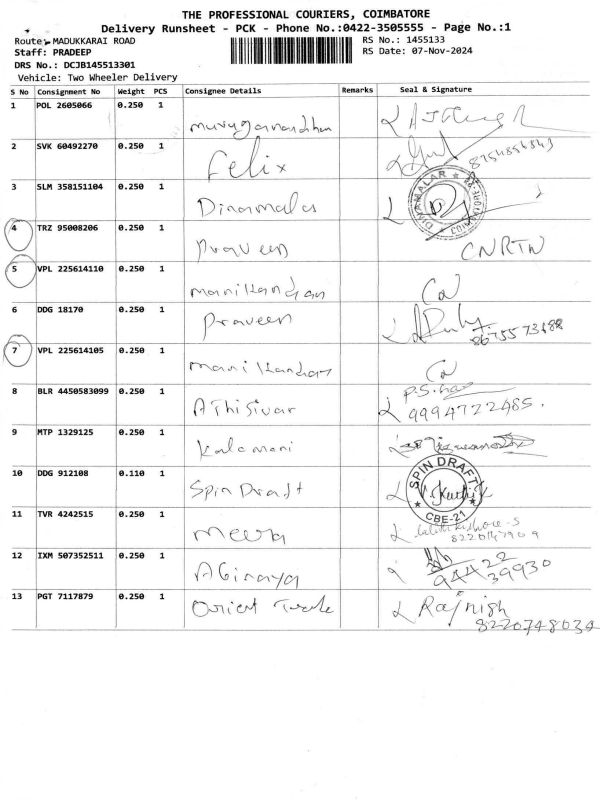 THE PROFESSIONAL COURIERS, COIMBATORE
Delivery Runsheet - PCK - Phone No.:0422-3505555 - Page No.:1
Route: MADUKKARAI ROAD
RS No.: 1455133
Staff: PRADEEP
RS Date: 07-Nov-2024
DRS No.: DCJB145513301
Vehicle: Two Wheeler Delivery
S No Consignment No Weight PCS Consignee Details Remarks Seal & Signature
1 POL 2605066 0.250 1 Muruganandhan
2 SVK 60492270 0.250 1 Felix
3 SLM 358151104 0.250 1 Dinamalar DINAMALAR
4 TRZ 95008206 0.250 1 Praveen CNRTN
5 VPL 225614110 0.250 1 Manikandan
6 DDG 18170 0.250 1 Praveen
7 VPL 225614105 0.250 1 Manikandan
8 BLR 4450583099 0.250 1 Athisivar 9994722485.
9 MTP 1329125 0.250 1 Kalamani
10 DDG 912108 0.110 1 Spin Draft SPIN DRAFT CBE-21
11 TVR 4242515 0.250 1 Meera 8220147909
12 IXM 507352511 0.250 1 Abinaya 94422 39930
13 PGT 7117879 0.250 1 Orient Rajnish
8220748034